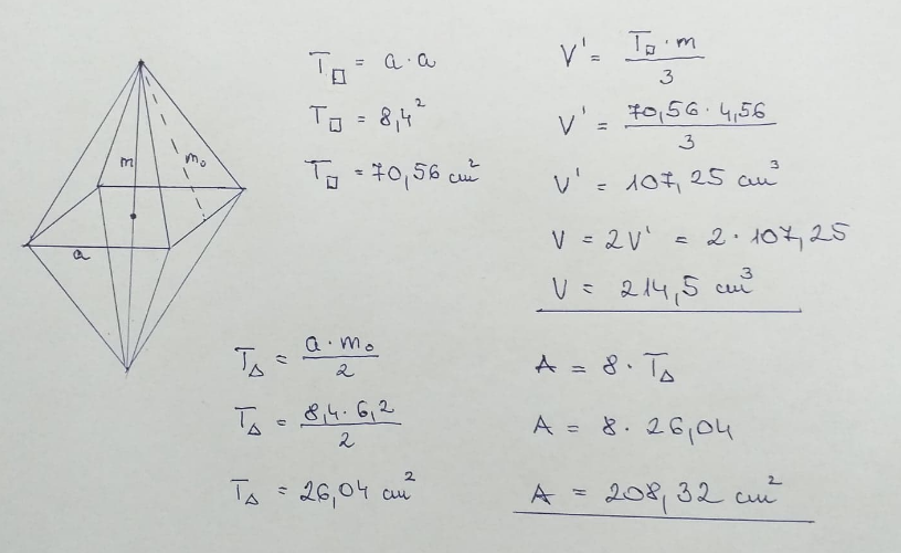 m
m₀
a
T□ = a · a
T□ = 8,4²
T□ = 70,56 cm²
V' = T□ · m / 3
V' = 70,56 · 4,56 / 3
V' = 107,25 cm³
V = 2V' = 2 · 107,25
V = 214,5 cm³
T△ = a · m₀ / 2
T△ = 8,4 · 6,2 / 2
T△ = 26,04 cm²
A = 8 · T△
A = 8 · 26,04
A = 208,32 cm²